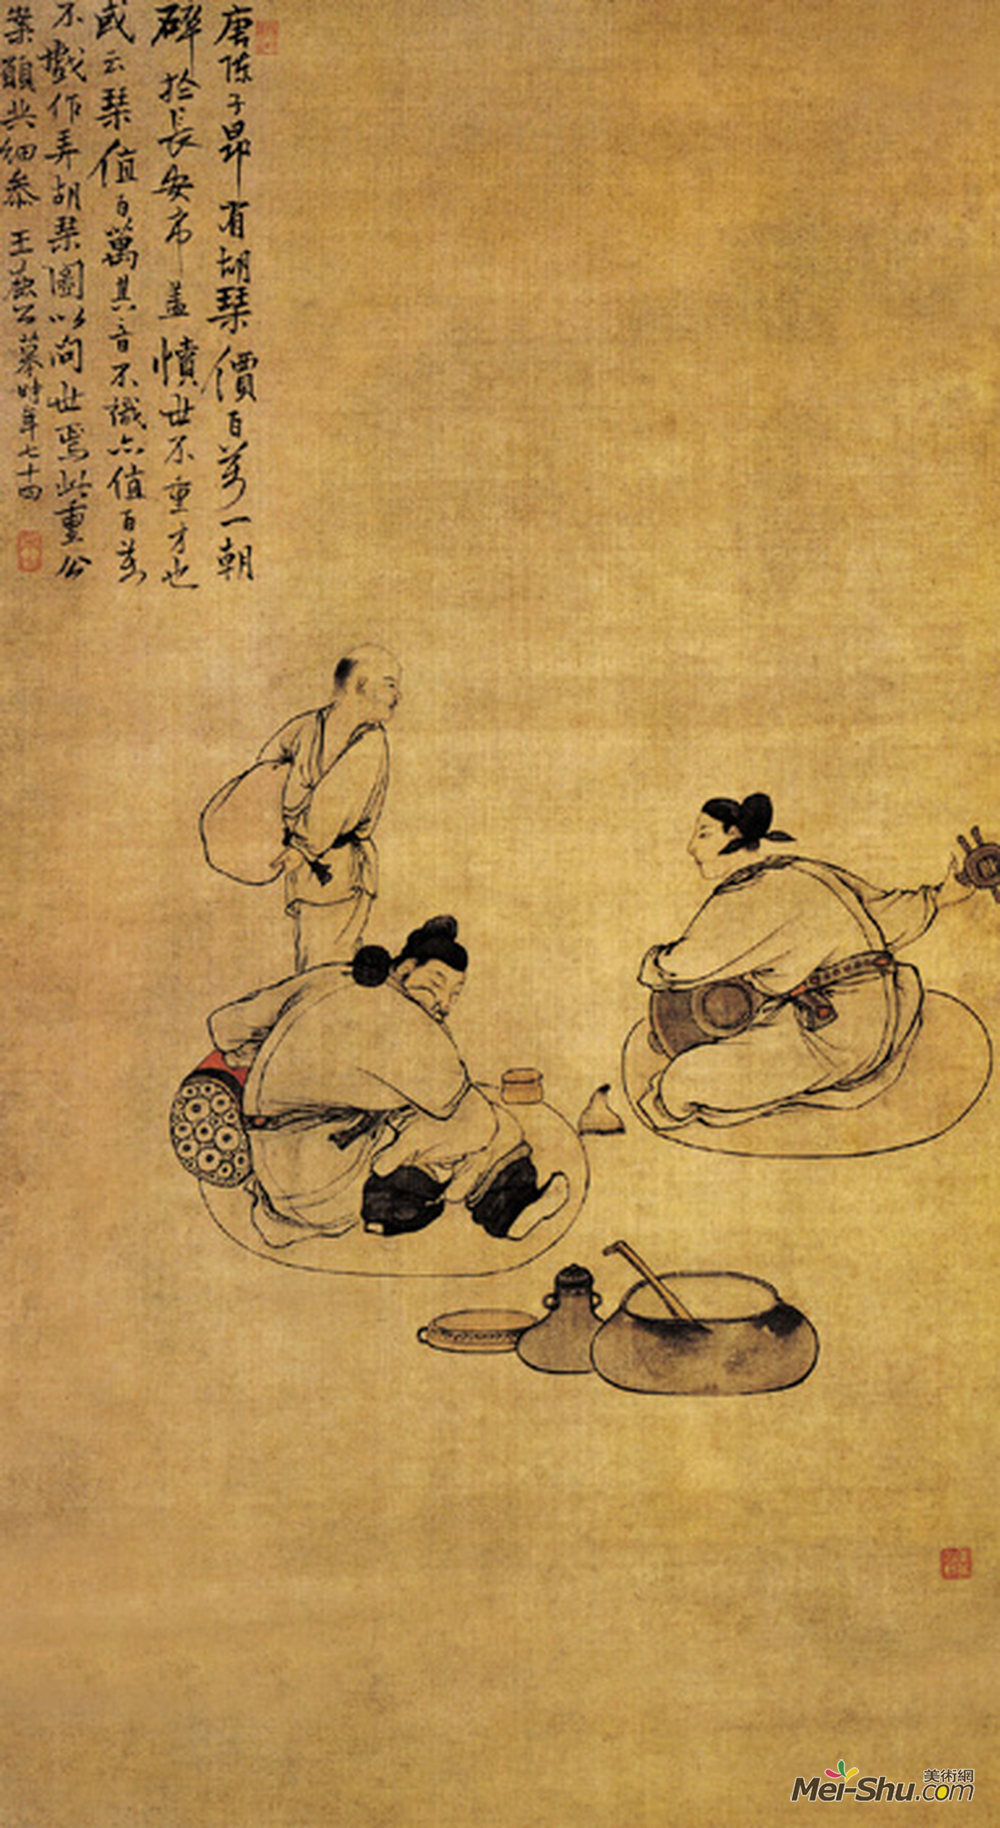 唐陈子昂有胡琹價百萬一朝
碎於長安市盖憤世不重才也
或云琹值百萬其音不識亦值百萬
不戲作弄胡琹圖以问世焉此重公
業願共細參 王 公摹時年七十四
美術網
Mei-Shu.com